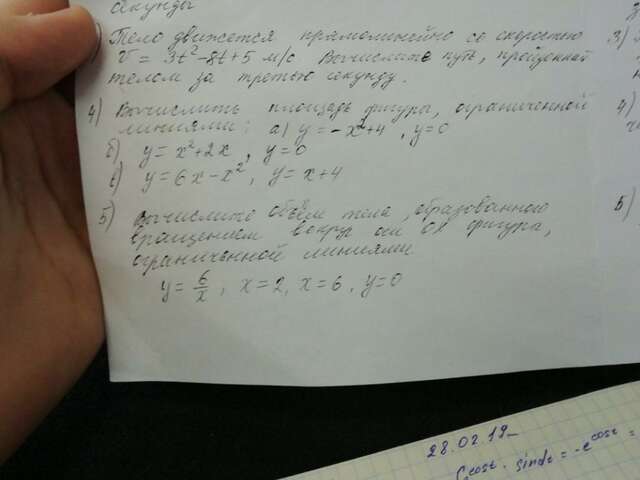 секунды
) Тело движется прямолинейно со скоростью
V = 3t²-8t+5 м/с Вычислите путь, пройденный
телом за третью секунду.
4) Вычислить площадь фигуры, ограниченной
линиями: а) y = -x²+4, y=0
б) y = x²+2x, y=0
в) y=6x-x², y=x+4
5) Вычислите объём тела, образованного
вращением вокруг оси OX фигуры,
ограниченной линиями
y = 6/x, x=2, x=6, y=0
3)
4)
5)
28.02.19
cost · sindt = -e^cost =